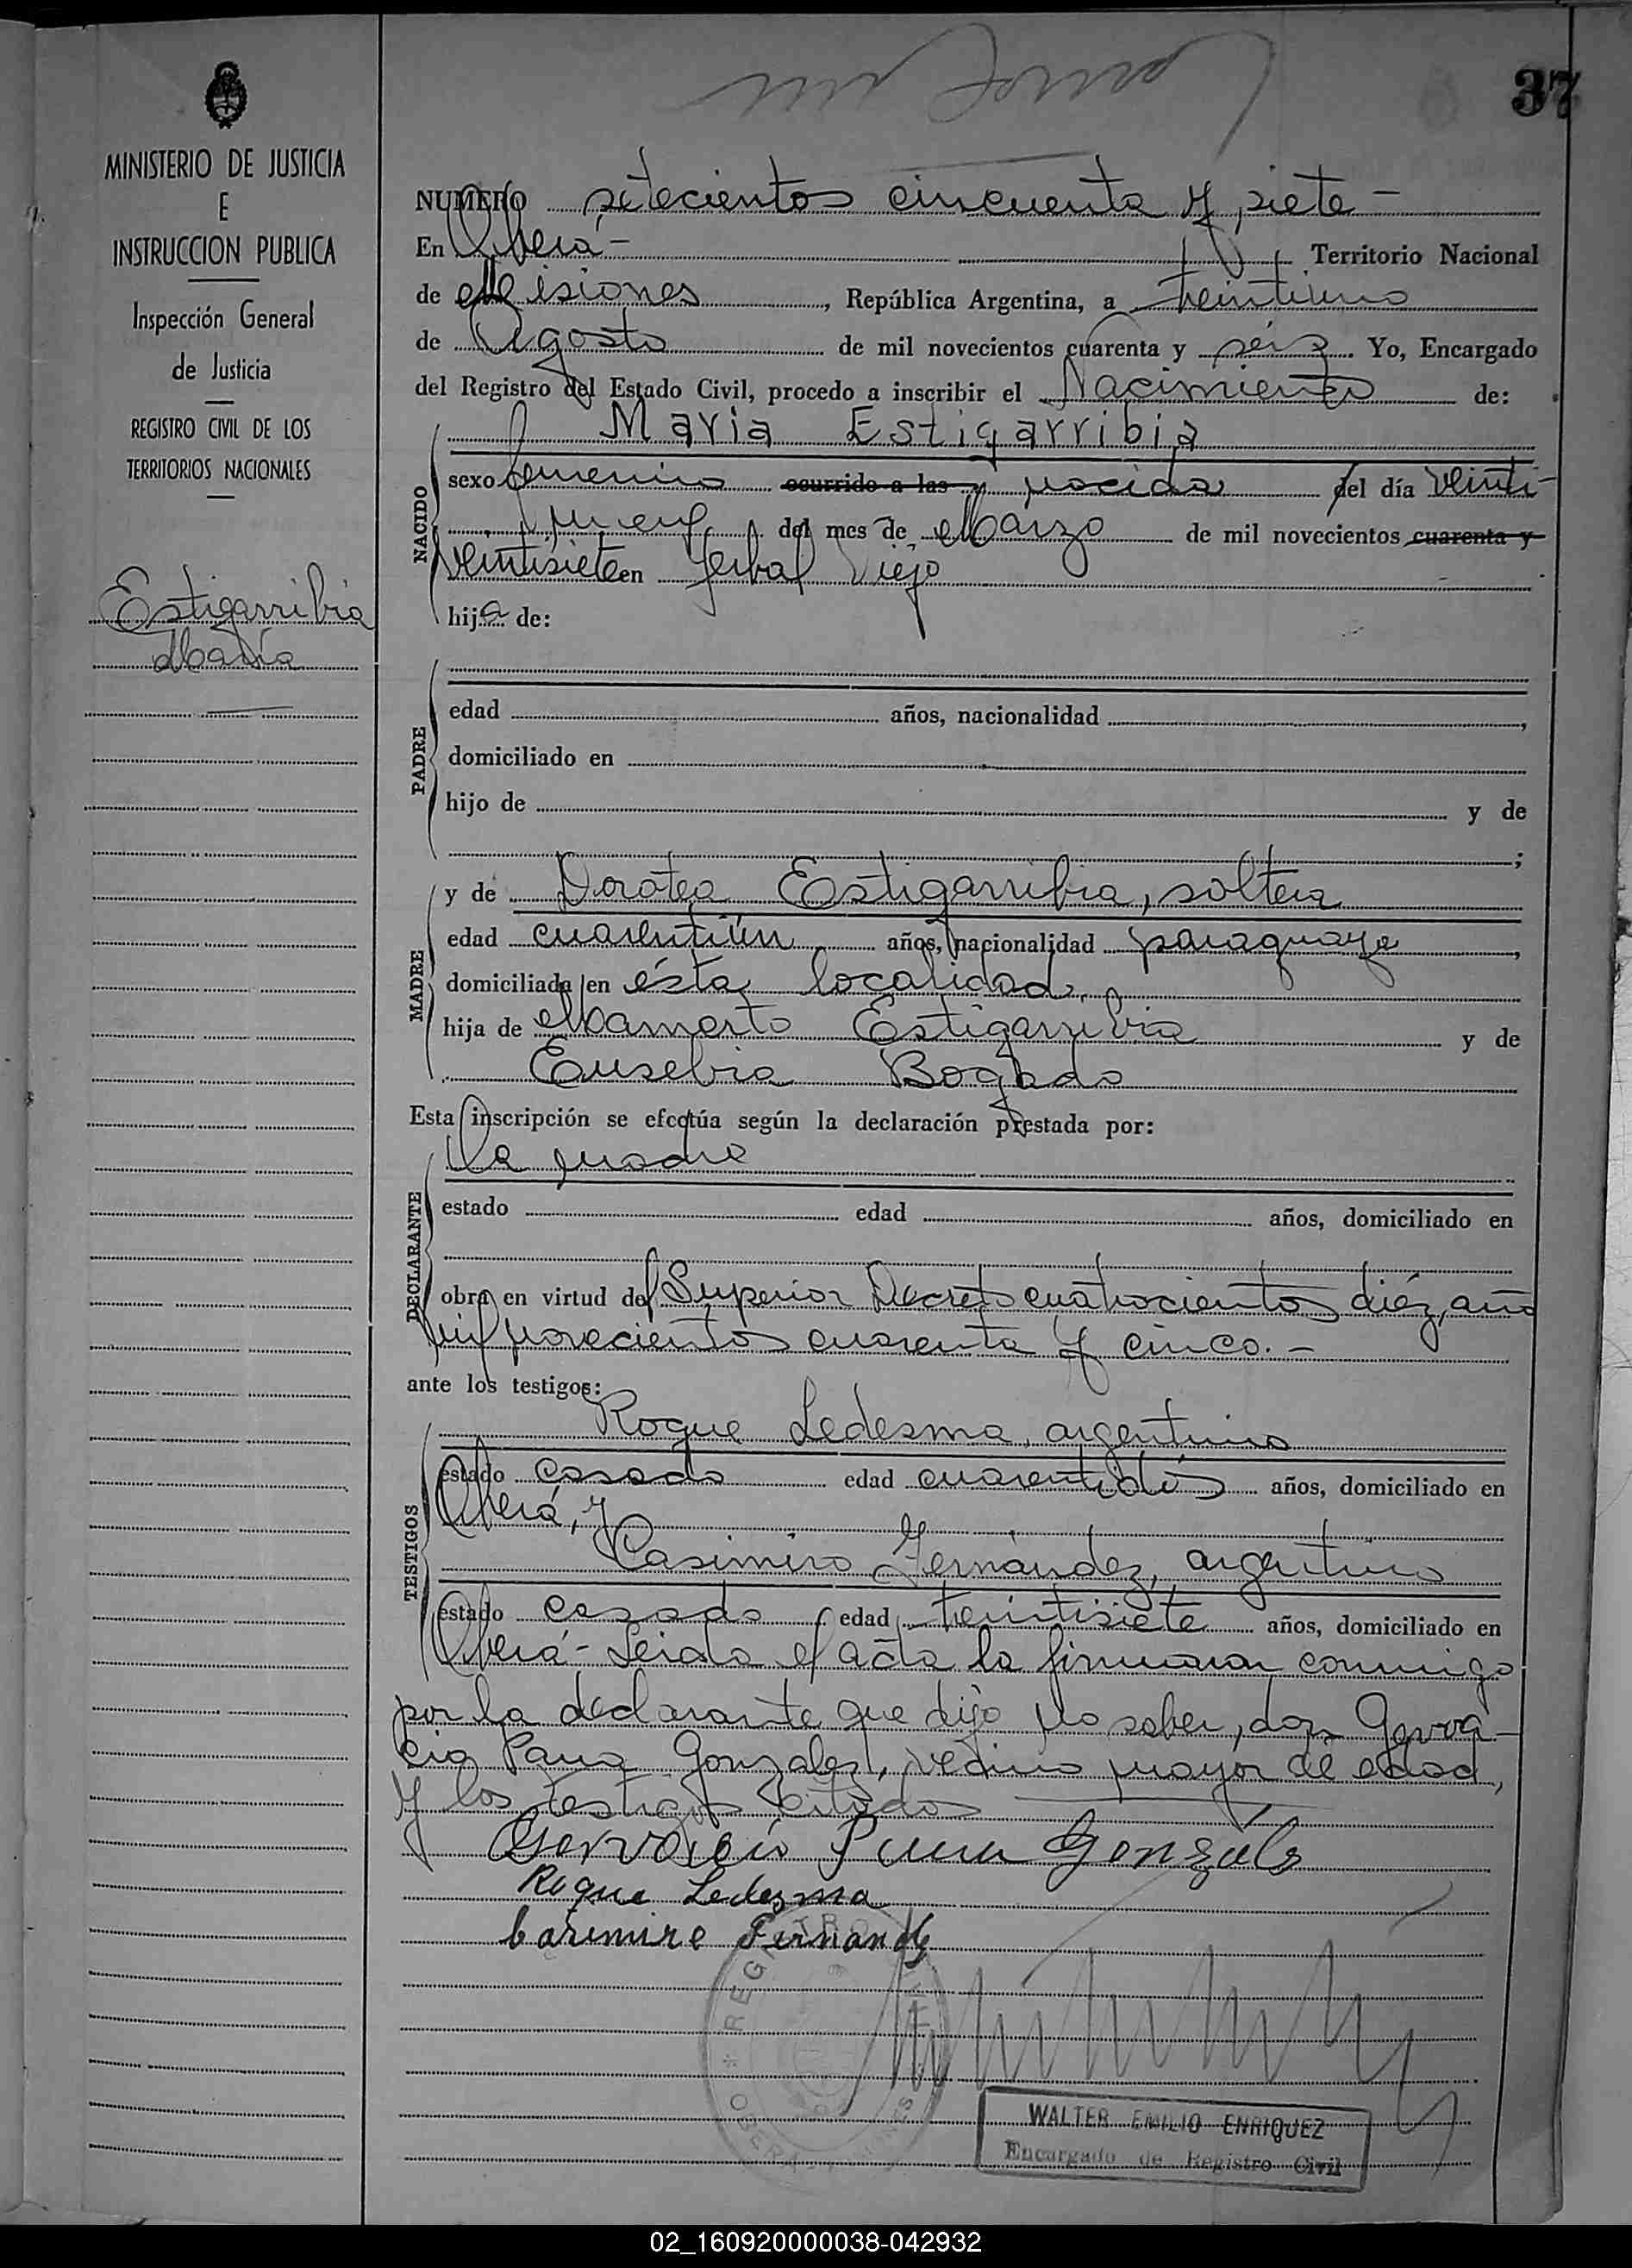 37
MINISTERIO DE JUSTICIA
E
INSTRUCCION PUBLICA
Inspección General
de Justicia
REGISTRO CIVIL DE LOS
TERRITORIOS NACIONALES
Estigarribia
María
NUMERO setecientos cincuenta y siete -
En Oberá - Territorio Nacional
de Misiones, República Argentina, a treintiuno
de Agosto de mil novecientos cuarenta y séis. Yo, Encargado
del Registro del Estado Civil, procedo a inscribir el Nacimiento de:
NACIDO
Maria Estigarribia
sexo femenino ocurrido a las y nacida del día veinti-
nueve del mes de Marzo de mil novecientos cuarenta y
veintisiete en Yerbal Viejo
hija de:
PADRE
edad años, nacionalidad ,
domiciliado en
hijo de y de
;
MADRE
y de Dorotea Estigarribia, soltera
edad cuarentiún años, nacionalidad paraguaya,
domiciliada en ésta localidad,
hija de Mamerto Estigarribia y de
Eusebia Bogado
Esta inscripción se efectúa según la declaración prestada por:
DECLARANTE
la madre
estado edad años, domiciliado en
obra en virtud del Superior Decreto cuatrocientos diéz, año
mil novecientos cuarenta y cinco. -
ante los testigos:
TESTIGOS
Roque Ledesma, argentino
estado casado edad cuarentidós años, domiciliado en
Oberá, y
Casimiro Fernández, argentino
estado casado edad treintisiete años, domiciliado en
Oberá - Leida el acta la firmaron conmigo
por la declarante que dijo no saber, don Gerva-
cio Pana Gonzalez, vecino mayor de edad,
y los testigos citados
Gervacio Gonzalez
Roque Ledezma
Casimiro Fernandez
REGISTRO
OBERA MISIONES
WALTER EMILIO ENRIQUEZ
Encargado de Registro Civil
02_160920000038-042932